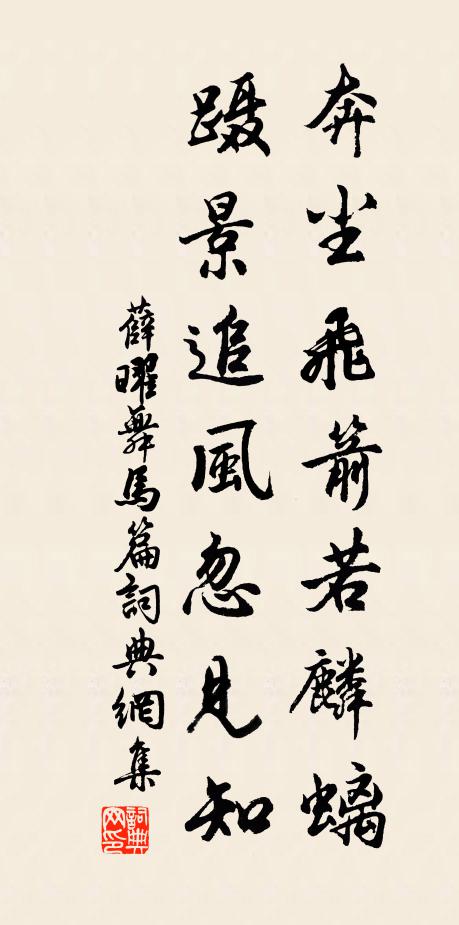 奔尘飛箭若麟螭
蹑景追風忽見知
薛曜舞馬篇詞典網集
詞典网印